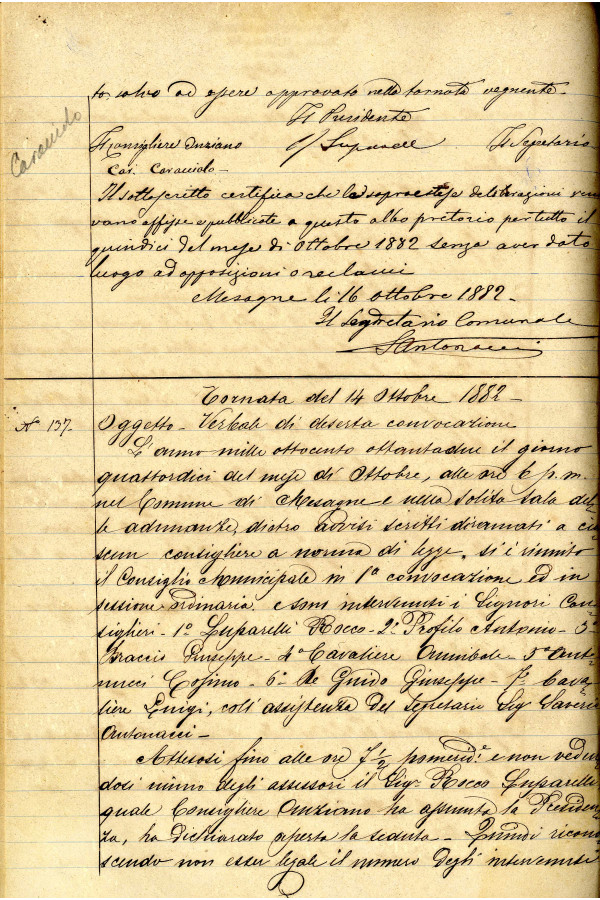 to, salvo ad essere approvato nella tornata vegnente -
Il Presidente
Il Consigliere Anziano
Il Segretario
Cav. Caracciolo -
Caracciolo
Il sottoscritto certifica che le sopraestese deliberazioni ven
nero affisse e pubblicate a questo albo pretorio per tutto il
quindici del mese di Ottobre 1882 senza aver dato
luogo ad opposizioni o reclami
Mesagne li 16 ottobre 1882 -
Il Segretario Comunale
S Antonacci
Tornata del 14 Ottobre 1882 -
No 137.
Oggetto - Verbale di deserta convocazione
L'anno mille ottocento ottantadue il giorno
quattordici del mese di Ottobre, alle ore 6 p.m.
nel Comune di Mesagne e nella solita sala del
le adunanze, dietro avvisi scritti diramati a cia
scun consigliere a norma di legge, si è riunito
il Consiglio Municipale in 1a convocazione ed in
sessione ordinaria e sono intervenuti i Signori Con
siglieri - 1o Luparelli Rocco - 2o Profilo Antonio - 3o
Braccio Giuseppe - 4o Cavaliere Annibale - 5o Anto
nucci Cosimo - 6o De Guido Giuseppe - 7o Cava
liere Luigi, coll'assistenza del Segretario Sig Saverio
Antonacci -
Attesosi fino alle ore 7 1/2 pomeride e non veden
dosi niuno degli assessori il Sigr Rocco Luparelli
quale Consigliere Anziano ha assunta la Presiden
za, ha dichiarato aperta la seduta - Quindi ricono
scendo non esser legale il numero degli intervenuti